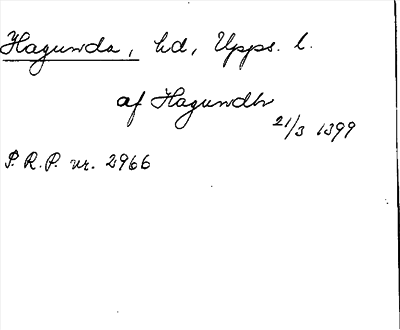 Hagunda, hd, Upps. l.
af Hagundh
21/3 1399
P.R.P. nr. 2966